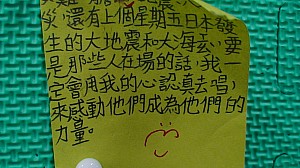 災,還有上個星期五日本發
生的大地震和大海玄,要
是那些人在場的話,我一
定會用我的心認真去唱,
來感動他們成為他們的
力量。